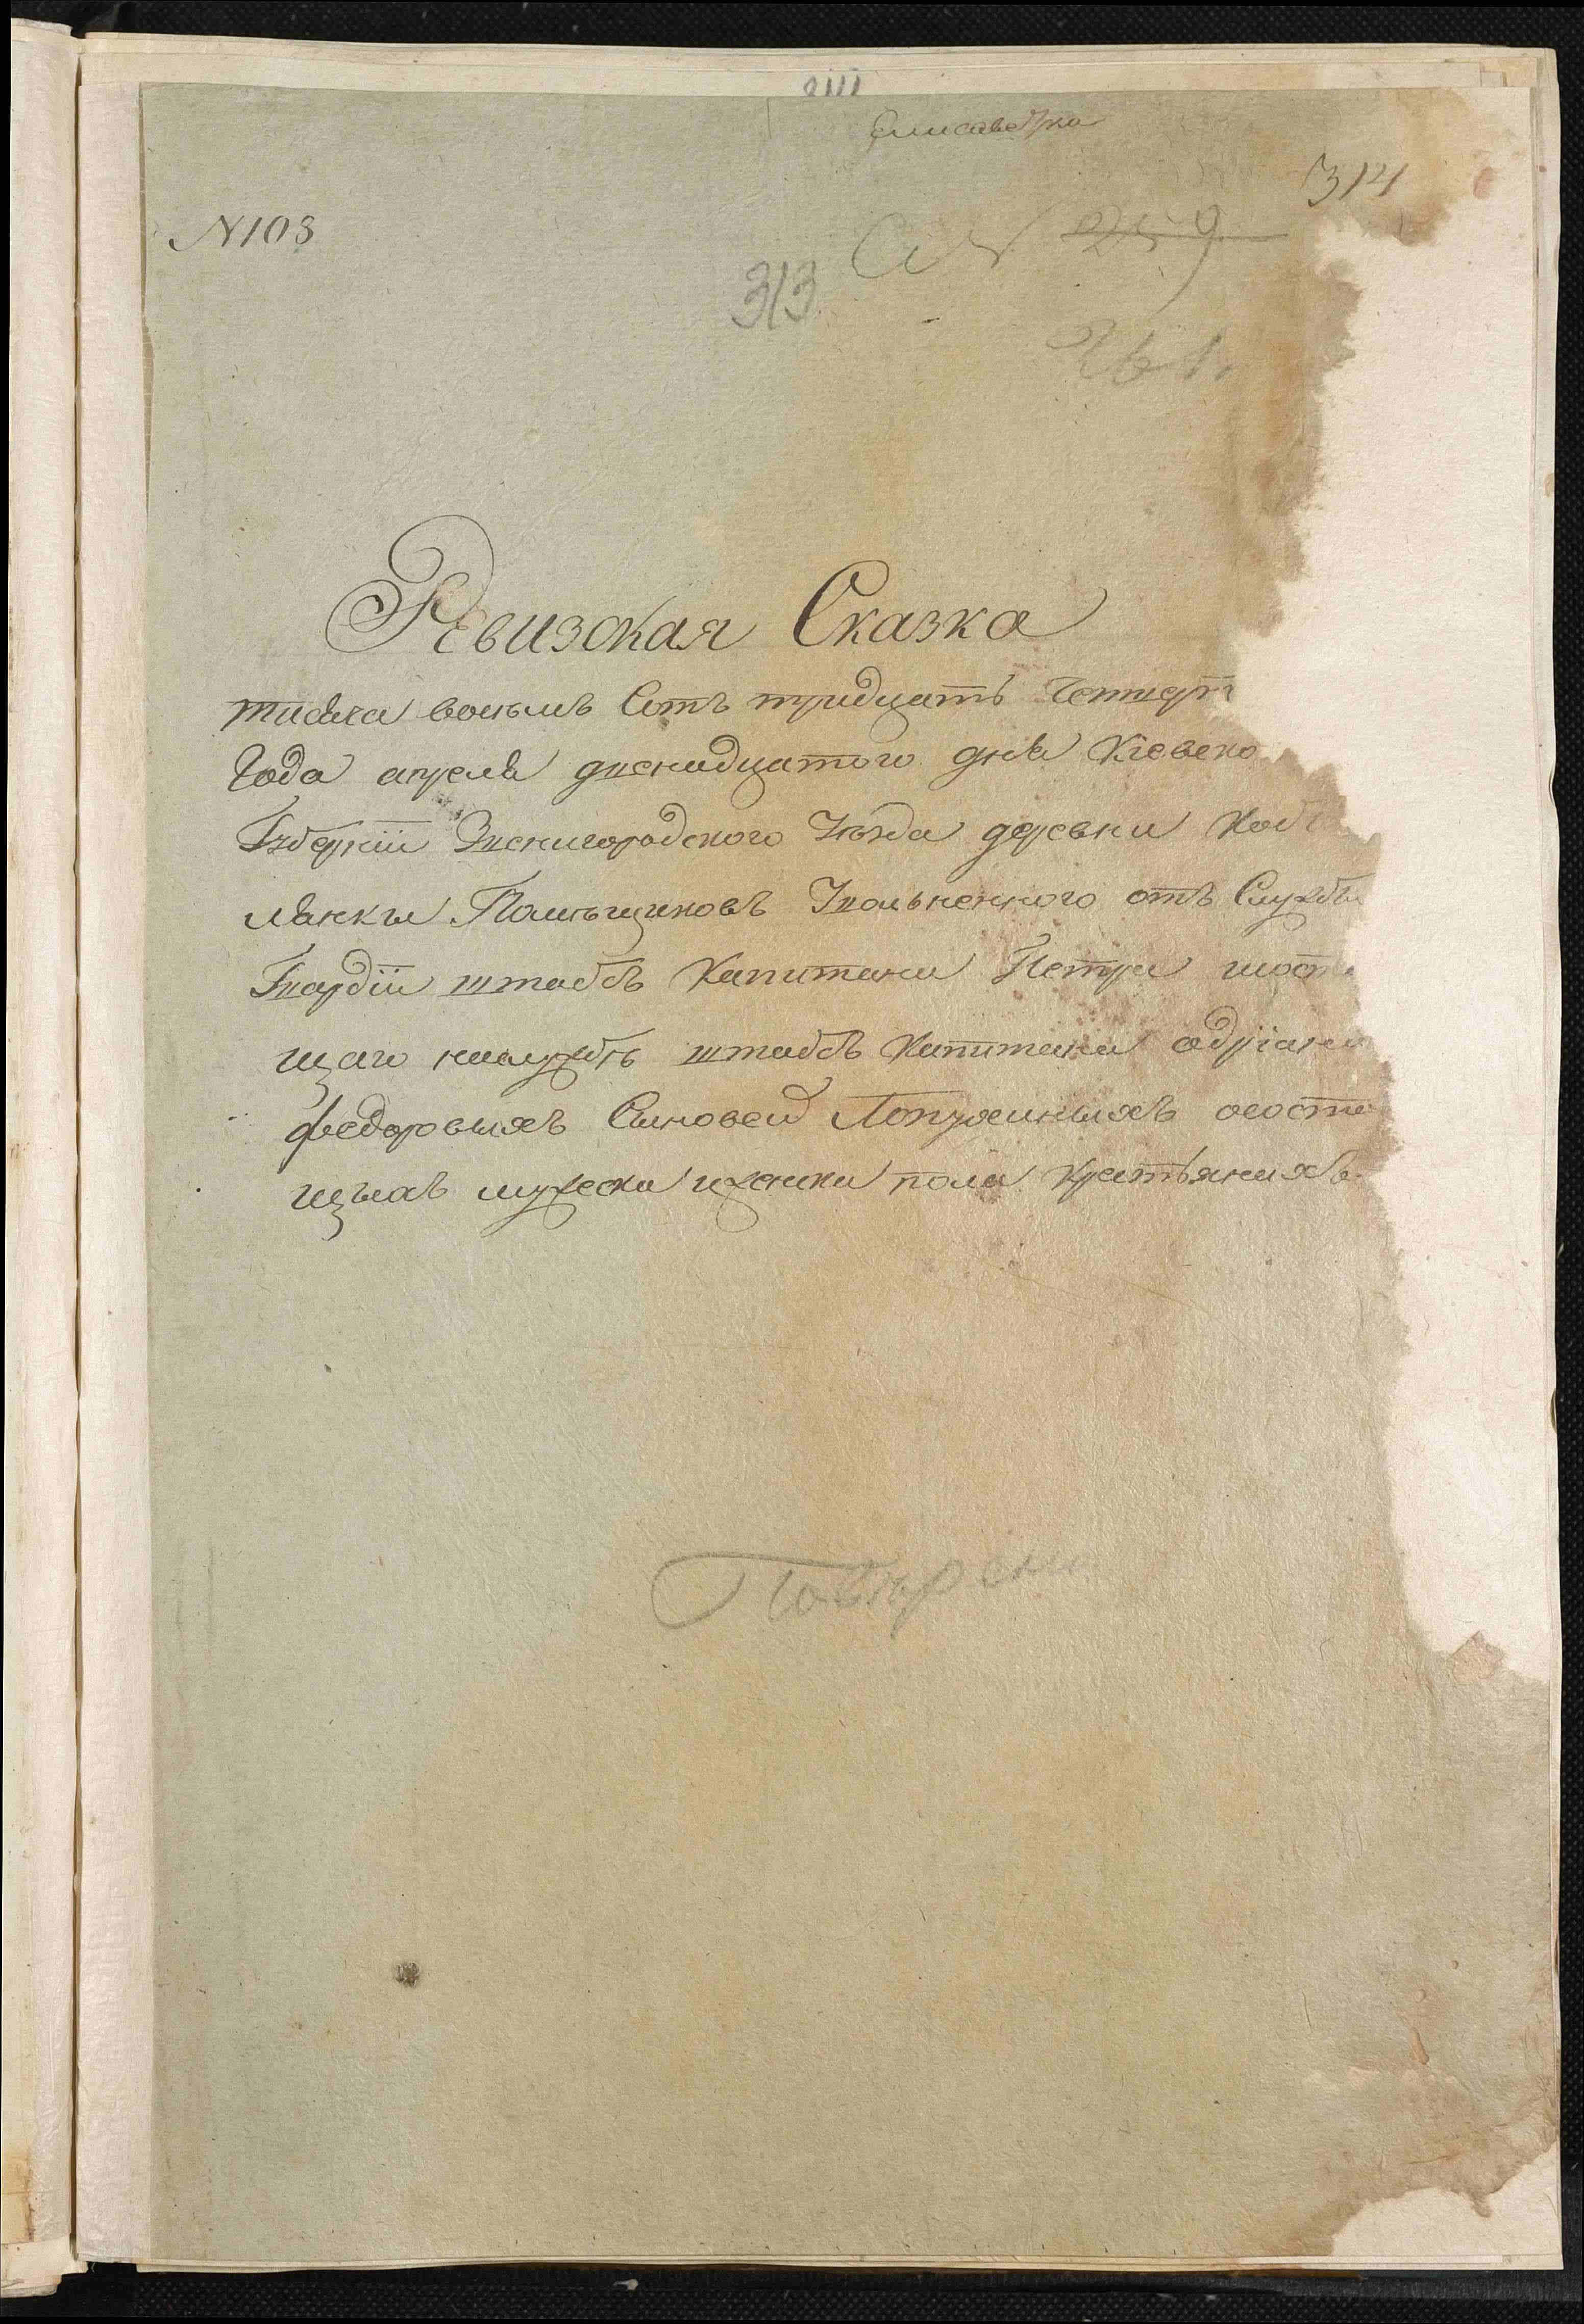 Елисаветка
314
N103
N 259
313
261.
Ревизская Сказка
тисяча восемъ Сотъ тридцать Четверт
Года апреля двенадцатого дня Кіевско
Губерніи Звенигородского Уѣзда деревни Коб
лянки Помѣщиковъ Уволненного отъ Службы
Гвардіи штабсъ Капитана Петра
щаго наслужбѣ штабсъ Капитана адріана
федоровыхъ Сыновей Лопухиныхъ осостоя
щыхъ мужеска иженска пола Крестьянахъ.
Повѣрена